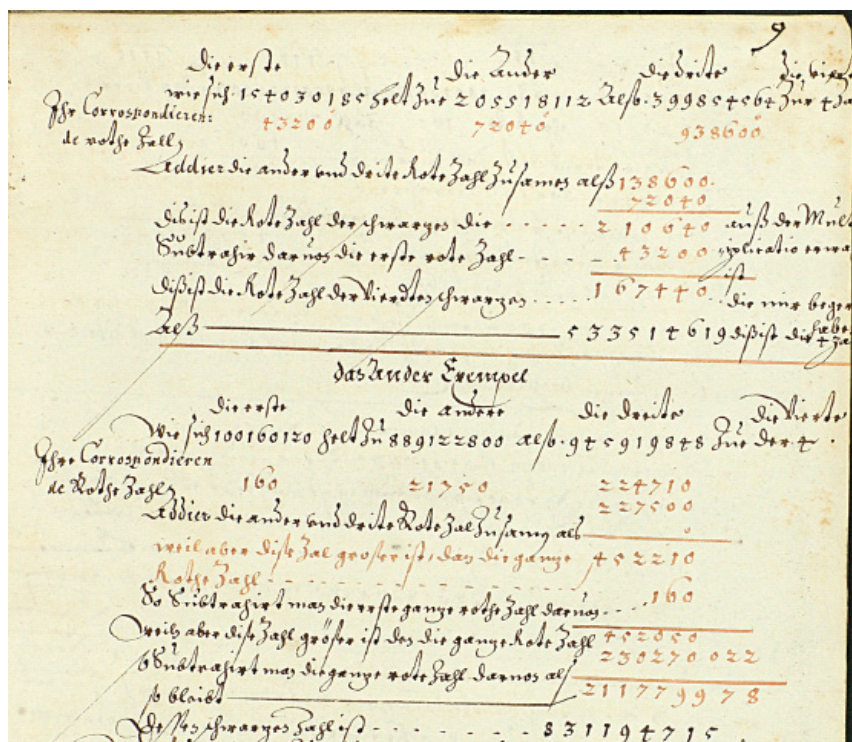 9
die erste die Ander die dritte die vierte
wie sich 154030185 helt zue 205518112 Also 399854564 zur 4
Ihr Correspondieren:
de rothe Zall 43200 72040 938600
Addier die ander vnd dritte Rote Zahl Zusamen alß 138600.
72040
dis ist die Rote Zahl der schwarzen die - - - - - 210640 auß der Mult
Subtrahir daruon die erste rote Zahl - - - - 43200 iplicatio
ist
diß ist die Rote Zahl der Vierdten schwarzen .... 167440 .. die mir beger
Alß 533514619 diß ist die
Das Ander Exempel
die erste die andere die dreite die Vierte
Wie sich 100160120 helt zu 889122800 also 945919848 Zue der 4.
Ihre Correspondieren
de Rothe Zahl 160 21750 224710
227500
Addier die ander vnd dreite Rote Zal Zusamen als 0
weil aber dise Zal groser ist, dan die ganze 452210
Rothe Zahl - - - - - - -
So Subtrahirt man die erste ganze rothe Zahl daruon - - - 160
weils aber dise Zahl gröser ist den die ganze Rote Zahl 452050
so Subtrahirt man die ganze rote Zahl daruon als 230270022
so bleibt 211779978
Dessen schwarzen Zahl ist - - - - - - 831194715